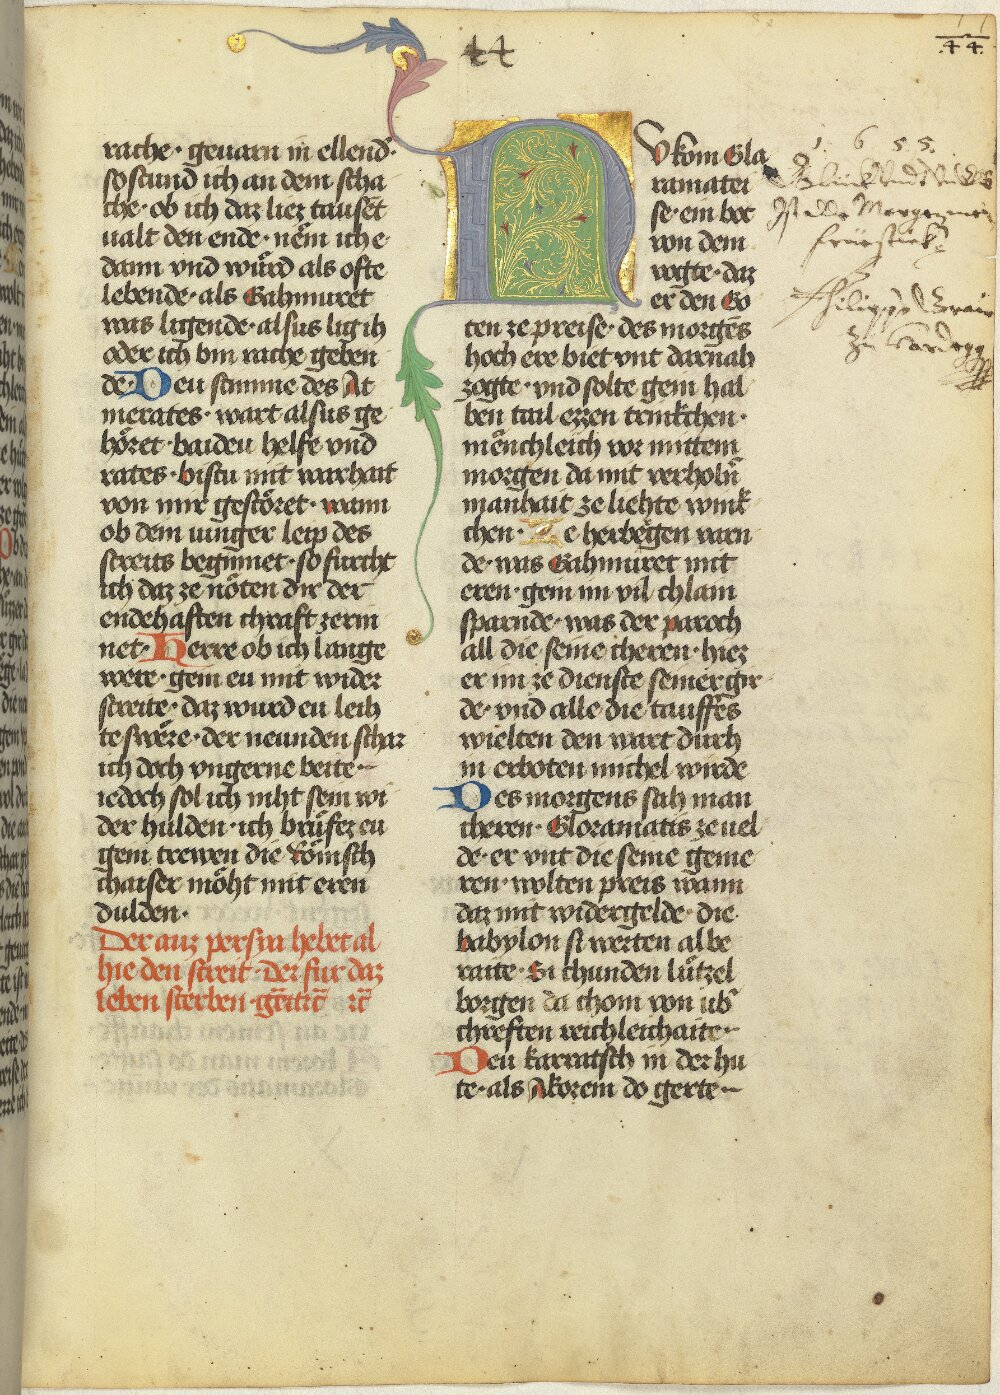 44
44
rache · geuarn in ellend ·
so stund ich an dem scha
che · ob ich daz liez tauset
ualt den ende · nem ich e
dann vnd wurd als ofte
lebende · als Gahmuret
was ligende · alsus lig ih
oder ich bin rache geben
de · Deu stimme des At
merates · wart alsus ge
höret · baideu helfe vnd
rates · bistu mit warhait
von mir gestöret · wann
ob dem iunger leip des
streits beginnet · so furcht
ich daz ze nöten dir der
endehaften chraft zerin
net · Herre ob ich lange
were · gein eu mit wider
streite · daz wurd eu leih
te swëre · der neunden schar
ich doch vngerne beite ·
iedoch sol ich niht sein wi
der hulden · ich brüfez eu
gein trewen die Römisch
chaiser möht mit eren
dulden ·
Der auz persya hebet al
hie den streit · Der fur daz
leben sterben
NV kom Gla
ramatei
se · ein bot
von dem
vogte · daz
er den Go
ten ze preise · des morgens
hoch ere biet vnt darnah
zogte · vnd solte gein hal
ben tail ezzen trinkchen ·
menchleich vor mittem
morgen da mit verholn
manhait ze liehte wink
chen · Ze herbegen varn
de · was Gahmuret mit
eren · gein im vil chlain
sparnde · was der paroch
all die seine iheren · hiez
er im ze dienste seiner gir
de · vnd alle die tauffes
wielten den wart durch
in erboten michel wirde
Des morgens sah man
cheren · Gloramatis ze uel
de · er vnt die seine geine
ren · wolten preis wann
daz mit widergelde · die
babylon si werten al be
raite · Si chunden lützel
borgen da chom von vb
chreften reichleichaite ·
Deu karratsch in der hu
te · als Akorein do gerte ·
1 6 5 5.
Ist alle Morgen mein
früestuckh
Philipp
zu Hardegg